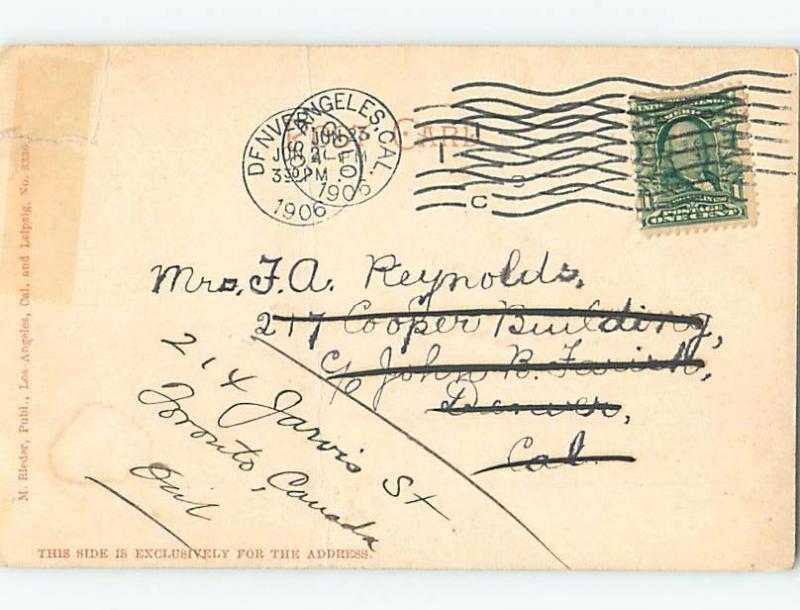 POST CARD
DENVER
COLO.
JUN 2
3 30 PM
1906
ANGELES, CAL.
JUN 23
-PM
1906
C
POSTAGE
ONE CENT
Mrs. F. A. Reynolds,
217 Cooper Building,
c/o John B. Farish,
Denver,
Cal.
214 Jarvis St
Toronto, Canada
M. Rieder, Publ., Los Angeles, Cal. and Leipzig. No. 3336
THIS SIDE IS EXCLUSIVELY FOR THE ADDRESS.